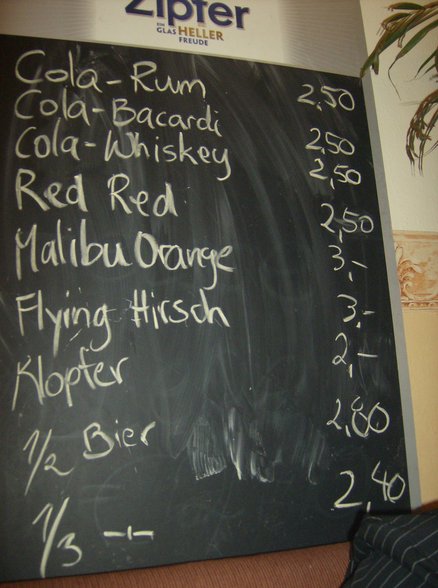 Zipfer
EIN GLAS HELLER FREUDE
Cola-Rum 2,50
Cola-Bacardi 2,50
Cola-Whiskey 2,50
Red Red 2,50
Malibu Orange 3,-
Flying Hirsch 3,-
Klopfer 2,-
1/2 Bier 2,80
1/3 -"- 2,40